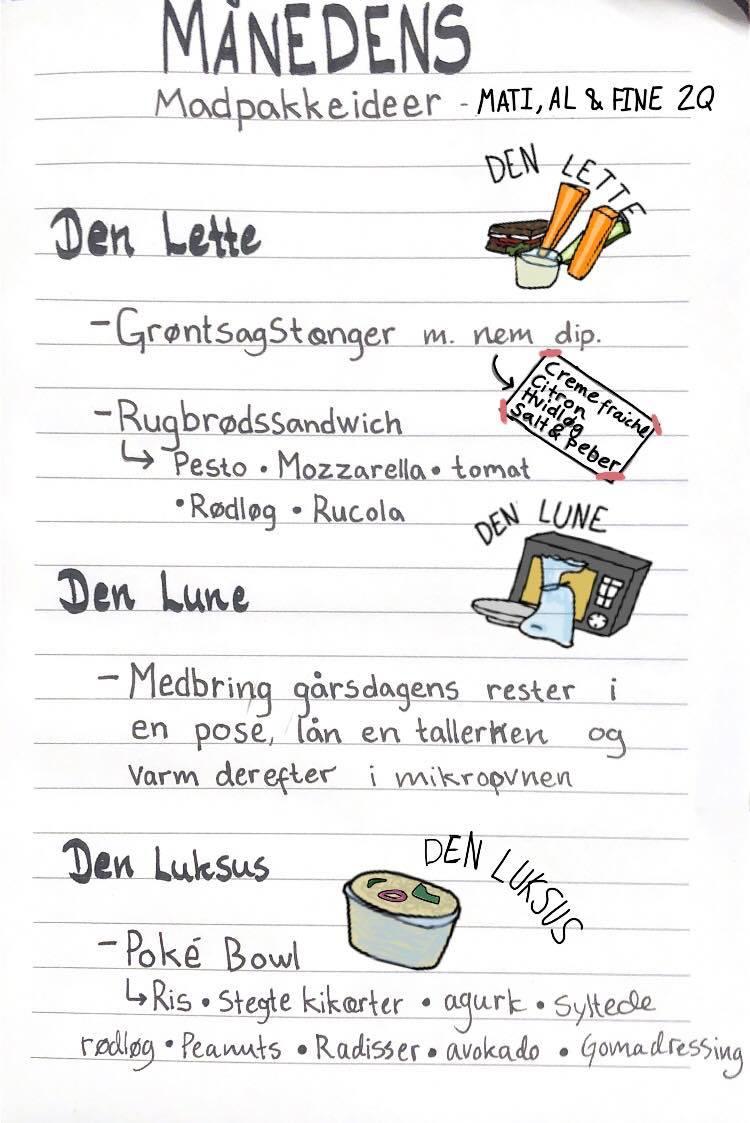 MÅNEDENS
Madpakkeideer - MATI, AL & FINE 2Q
DEN LETTE
Den Lette
- Grøntsagstænger m. nem dip.
Creme fraiche
Citron
Hvidløg
Salt & peber
- Rugbrødssandwich
↳ Pesto • Mozzarella • tomat
• Rødløg • Rucola
DEN LUNE
Den Lune
- Medbring gårsdagens rester i
en pose, lån en tallerken og
varm derefter i mikroovnen
DEN LUKSUS
Den Luksus
- Poké Bowl
↳ Ris • Stegte kikærter • agurk • Syltede
rødløg • Peanuts • Radisser • avokado • Gomadressing